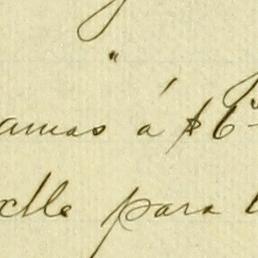 "
amas á $6
elle para